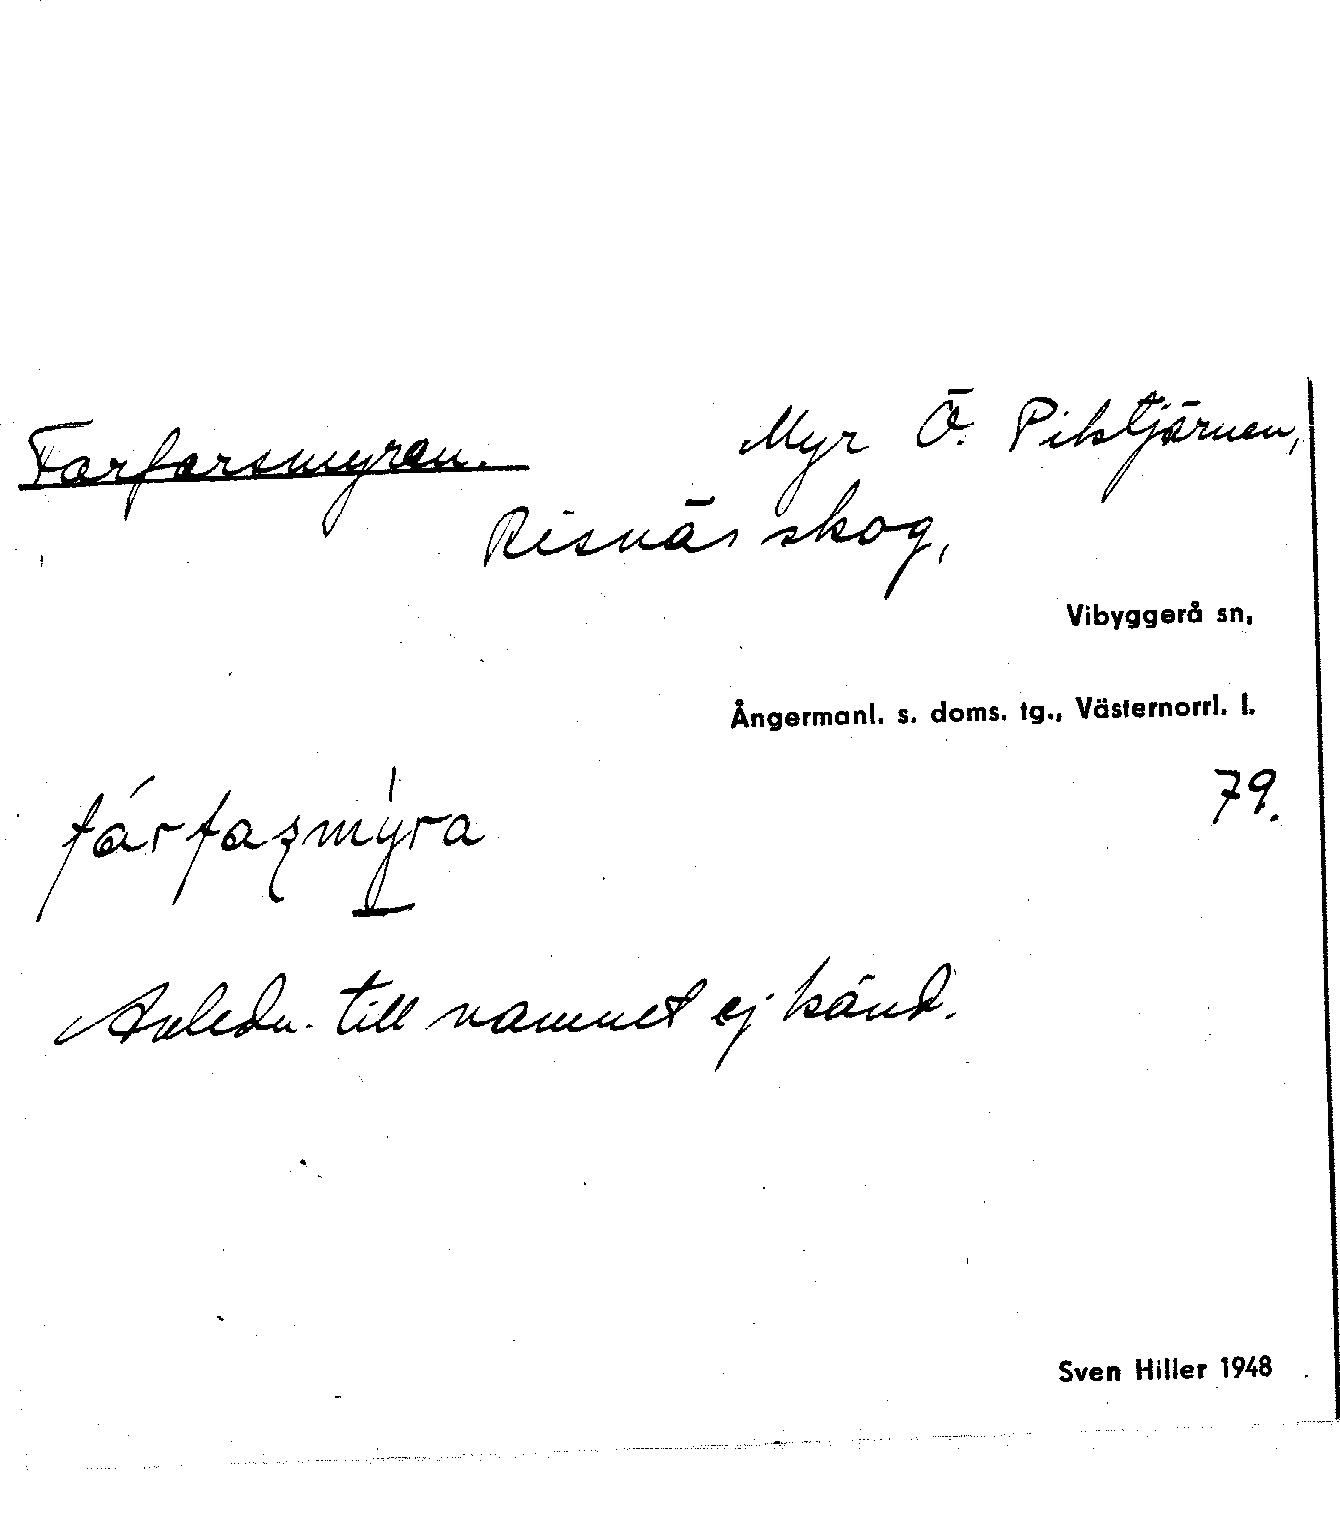 Farfarsmyren. Myr Ö. Piktjärnen,
Risnäs skog,
Vibyggerå sn,
Ångermanl. s. doms. tg., Västernorrl. l.
79.
fárfaʂmýra
Anledn. till namnet ej känd.
Sven Hiller 1948